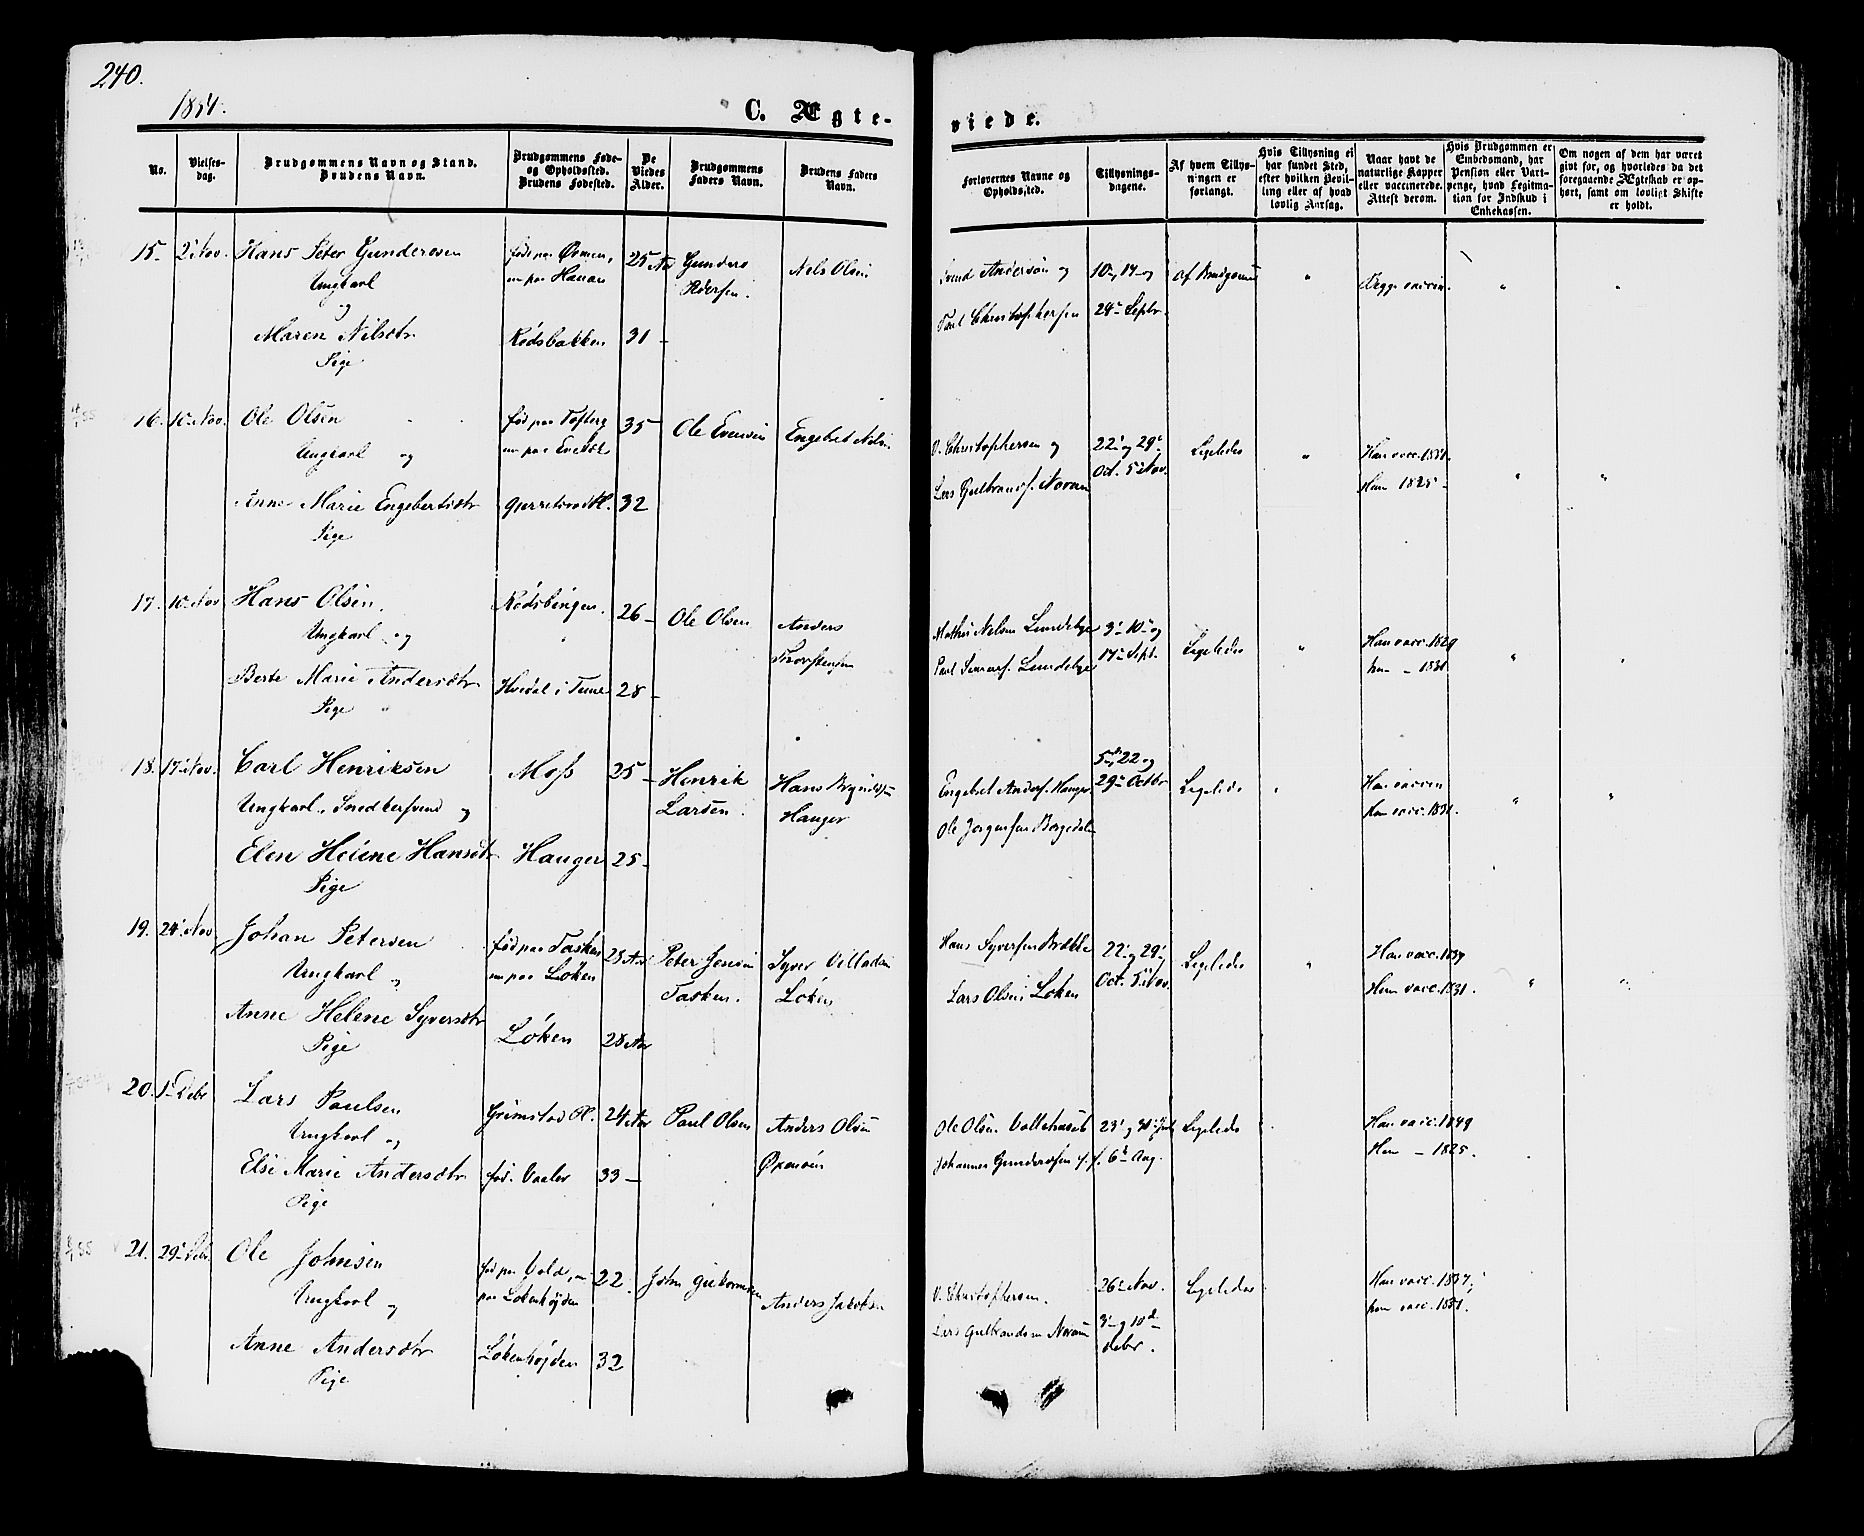 240.
1854.
C. Ægte-
viede.
No.
Vielses-
dag.
Brudgommens Navn og Stand.
Brudens Navn.
Brudgommens Føde-
og Opholdssted.
Brudens Fødested.
De
Viedes
Alder.
Brudgommens
Faders Navn.
Brudens Faders
Navn.
Forlovernes Navne og
Opholdssted.
Tillysnings-
dagene.
Af hvem Tillys-
ningen er
forlangt.
Hvis Tillysning ei
har fundet Sted,
efter hvilken Bevil-
ling eller af hvad
lovlig Aarsag.
Naar havt de
naturlige Kopper
eller vaccinerede.
Attest derom.
Hvis Brudgommen er
Embedsmand, har
Pension eller Vart-
penge, hvad Legitima-
tion for Indskud i
Enkekassen.
Om nogen af dem har været
givt for, og hvorledes da det
foregaaende Ægteskab er op-
hørt, samt om lovligt Skifte
er holdt.
15. 2 Nov. Hans Peter Gundersen 25 Aar Gunders Nels Olsen
Ungkarl Pedersen.
og
Maren Nilsdtr Rødsbakken 31
Pige
Svend Andersen og 10 17 og Af Brudgommen Begge vaccin.
Paul Christophersen 24 Septbr.
16. 10 Nov. Ole Olsen 35 Ole Evensen Engebret Nelsen
Ungkarl og
Anne Marie Engebretsdtr 32
Pige
V. Christophersen og 22 og 29 Ligeledes Han vacc. 1831.
Lars Gulbrands. Oct. 5 Nov. Hun 1825
17. 10 Nov Hans Olsen Rødsbingen. 26 Ole Olsen Anders
Ungkarl og Thorstensen
Berte Marie Andersdtr i Tune 28
Pige
Mathis Nelsen Lundeby 3 10 og Ligeledes Han vacc. 1829
Paul Lundeby 17 Sept. hun 1831
18. 17 Nov. Carl Henriksen Moss 25 Henrik Hans
Ungkarl, Snedkersvend og Larsen Hauger
Elen Helene Hansdtr Hauger 25
Pige
Engebret Anders. Hauger 5, 22 og 29 Octbr Ligeledes Han vaccin
Ole Jørgensen hun vacc. 1831.
19. 24 Nov Johan Petersen fød paa Tasken 28 Aar Peter Jensen Syver Villadsen
Ungkarl og nu paa Løken Tasken. Løken
Anne Helene Syversdtr Løken 28 Aar
Pige
Hans Syversen 22 29 Ligeledes Han vacc. 1834
Lars Olsen Løken Oct. 5 Nov. Hun vacc. 1831.
20. 1 Debr Lars Paulsen Grimstad 24 Aar Paul Olsen Anders Olsen
Ungkarl og
Else Marie Andersdtr fød. Vaaler 33
Pige
Ole Olsen 23 og 30 Ligeledes Han vacc. 1849
Johannes Gundersen 6 Aug. Hun 1825.
21. 29 Debr. Ole Johnsen 22. John Anders Jakobsen
Ungkarl og paa Løkenhøjden
Anne Andersdtr Løkenhøjden 32
Pige
V. Christophersen. 26 Nov. Ligeledes Han vacc. 1837,
Lars Gulbrandsen 3 og 10 Debr. hun vacc. 1831.